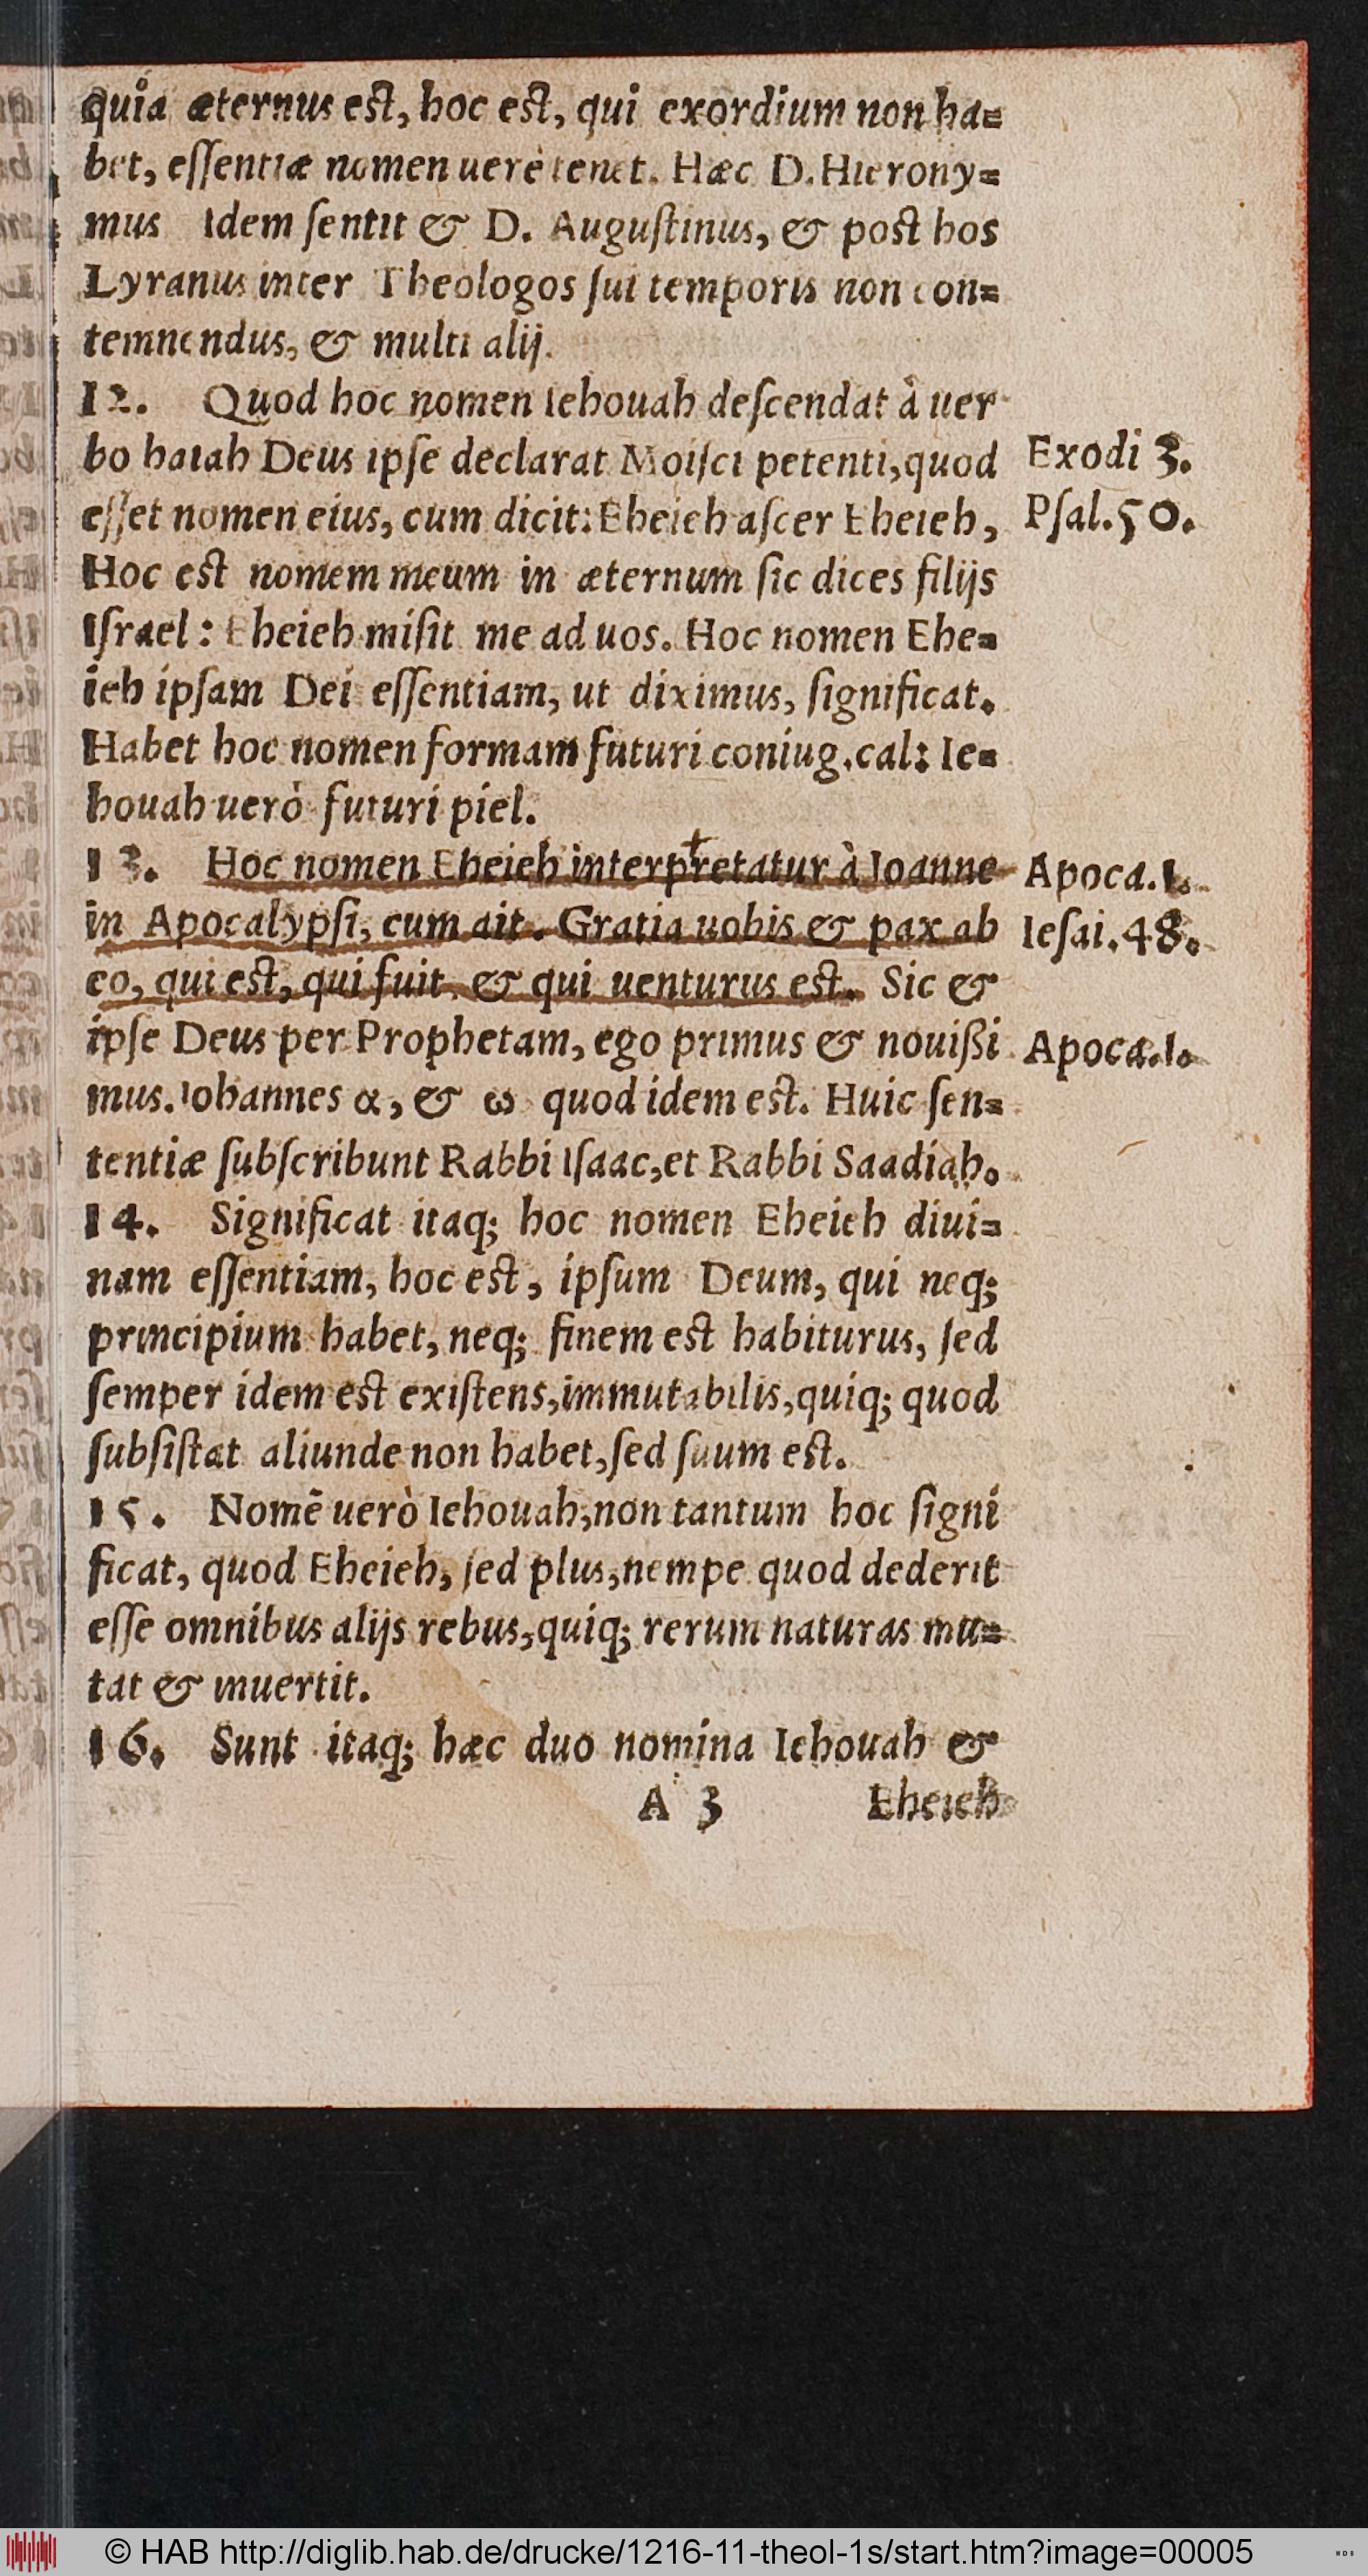 quia æternus est, hoc est, qui exordium non ha=
bet, eſſentiæ nomen uerè tenet. Hæc D. Hierony=
mus Idem ſentit & D. Auguſtinus, & post hos
Lyranus inter Theologos ſui temporis non con=
temnendus, & multi alij.
12. Quod hoc nomen Iehouah deſcendat à uer
bo haiah Deus ipſe declarat Moiſci petenti, quod
Exodi 3.
eſſet nomen eius, cum dicit: Eheieh aſcer Eheieh,
Pſal. 50.
Hoc est nomem meum in æternum ſic dices filijs
Iſrael: Eheieh miſit me ad uos. Hoc nomen Ehe=
ieh ipſam Dei eſſentiam, ut diximus, ſignificat.
Habet hoc nomen formam futuri coniug. cal: Ie=
houah uerò futuri piel.
13. Hoc nomen Eheieh interpretatur à Ioanne
Apoca. 1.
in Apocalypſi, cum ait. Gratia uobis & pax ab
Ieſai. 48.
eo, qui est, qui fuit, & qui uenturus est. Sic &
ipſe Deus per Prophetam, ego primus & nouißi
Apoca. 1.
mus. Iohannes α, & ω quod idem est. Huic ſen=
tentiæ ſubſcribunt Rabbi Iſaac, et Rabbi Saadiah.
14. Significat itaq; hoc nomen Eheieh diui=
nam eſſentiam, hoc est, ipſum Deum, qui neq;
principium habet, neq; finem est habiturus, ſed
ſemper idem est exiſtens, immutabilis, quiq; quod
ſubſiſtat aliunde non habet, ſed ſuum est.
15. Nomẽ uerò Iehouah, non tantum hoc ſigni
ficat, quod Eheieh, ſed plus, nempe quod dederit
eſſe omnibus alijs rebus, quiq; rerum naturas mu=
tat & inuertit.
16. Sunt itaq; hæc duo nomina Iehouah &
A 3 Eheieh
© HAB http://diglib.hab.de/drucke/1216-11-theol-1s/start.htm?image=00005